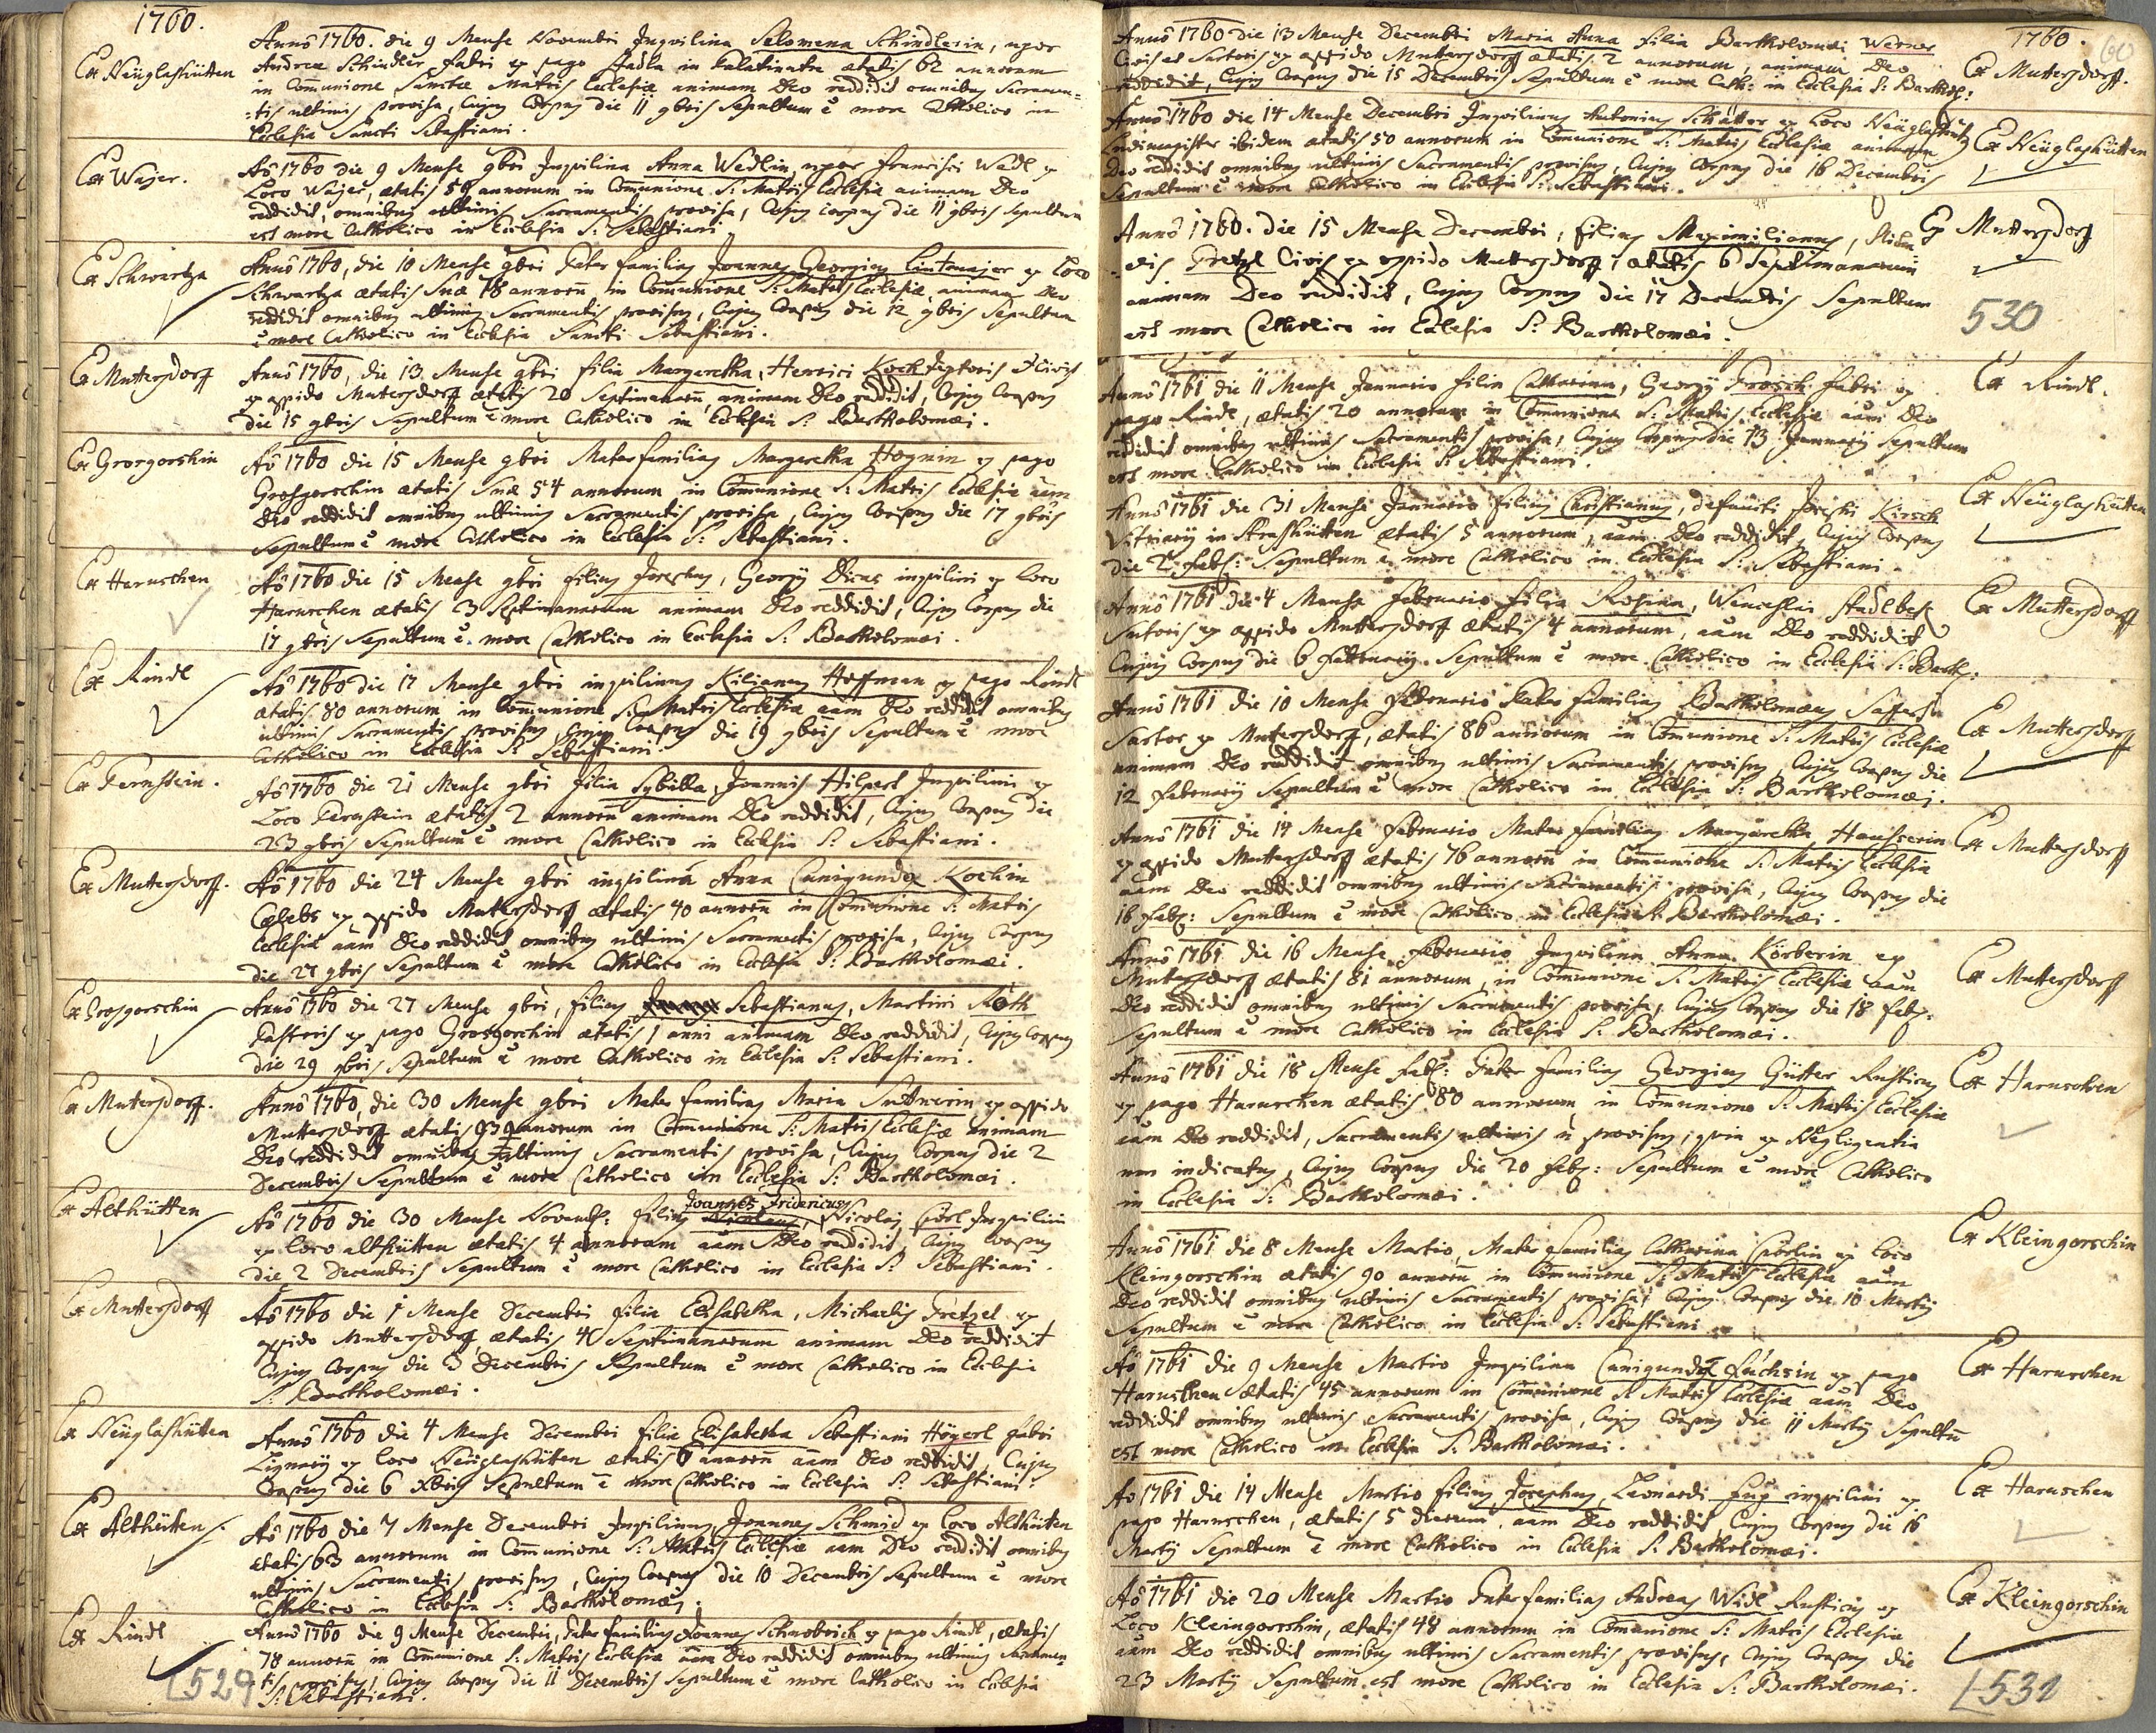 1760.
Ex Neüglashütten
Annô 1760. die 9 Mense Novembri Inquilina Salomena Schindlerin, uxor
Andreæ Schindler fabri ex pago Stadla in Palatinatu ætatis 62 annorum
in Com̄unione Sanctæ Matris Ecclesiæ animam Deo reddidit omnibus Sacramen=
=tis ultimis provisa, Cujus Corpus die 11 9bris Sepultum ẽ more Catholico in
Ecclesia Sancti Sebastiani.
Ex Wajer.
Aô 1760 die 9 Mense 9bri Inquilina Anna Wedlin uxor Francisci Wedl ex
Loco Wajer, ætatis annorum in Com̄unione S: Matris Ecclesiæ animam Deo
reddidit, omnibus ultimis Sacramentis provisa, Cujus corpus die 11 9bris Sepultum
est more Catholico in Ecclesia S: Sebastiani.
Ex Schwartza
Annô 1760, die 10 Mense 9bri Pater familias Joannes Georgius Lintmajer ex Loco
Schwartza ætatis Suæ annorũ, in Com̄unione S: Matris Ecclesiæ, animam Deo
reddidit omnibus ultimis Sacramentis provisus, Cujus Corpus die 12 9bris Sepultum
ẽ more Catholico in Ecclesia Sancti Sebastiani.
Ex Muttersdorf
Annô 1760, die 13 Mense 9bri filia Margaretha, Henrici Koch Textoris & Civis
ex oppido Mutersdorf ætatis 20 Septimanarũ, animam Deo reddidit, Cujus Corpus
die 15 9bris Sepultum ẽ more Catholico in Ecclesia S: Bartholomæi.
Ex Grosgorshin
Aô 1760 die 15 Mense 9bri Mater familias Margaretha Hognin ex pago
Grosgorschin ætatis Suæ 54 annorum in Com̄unione S: Matris Ecclesiæ aãm
Deo reddidit omnibus ultimis Sacramentis provisa, Cujus Corpus die 17 9bris
Sepultum ẽ more Catholico in Ecclesia S: Sebastiani.
Ex Haruschen
Aô 1760 die 15 Mense 9bri filius Josephus, Georgÿ inquilini ex Loco
Haruschen ætatis 3 Septimanarum animam Deo reddidit, Cujus Corpus die
17 9bris Sepultum ẽ more Catholico in Ecclesia S: Bartholomæi.
Ex Rindl
Aô 1760 die 17 Mense 9bri inquilinus Kilianus Hoffman ex pago Rindl
ætatis 80 annorum in Com̄unione S: Matris Ecclesiæ aãm Deo reddidit omnibus
ultimis Sacramentis provisus Cujus Corpus die 19 9bris Sepultum ẽ more
Catholico in Ecclesia S: Sebastiani.
Ex Fernstein.
Aô 1760 die 21 Mense 9bri filia Sybilla, Joannis Hilpert Inquilini ex
Loco Fernstein ætatis 2 annorũ animam Deo reddidit, Cujus Corpus die
23 9bris Sepultum ẽ more Catholico in Ecclesia S: Sebastiani.
Ex Muttersdorf.
Aô 1760 die 24 Mense 9bri inquilina Anna Cunigunda Kochin
Cælebs ex oppido Mutersdorf ætatis 40 annorũ in Com̄unione S: Matris
Ecclesiæ aãm Deo reddidit omnibus ultimis Sacramentis provisa, Cujus Corpus
die 27 9bris Sepultum ẽ more Catholico in Ecclesia S: Bartholomæi.
Ex Grosgorschin
Annô 1760 die 27 Mense 9bri, filius Sebastianus, Martini Roth
Pastoris ex pago Grosgorschin ætatis 1 anni animam Deo reddidit, Cujus Corpus
die 29 9bris Sepultum ẽ more Catholico in Ecclesia S: Sebastiani.
Ex Mutersdorf.
Annô 1760, die 30 Mense 9bri Mater familias Maria Sutnerin ex oppido
Muttersdorf ætatis annorum in Com̄unione S: Matris Ecclesiæ animam
Deo reddidit omnibus ultimis Sacramentis provisa, Cujus Corpus die 2
Decembris Sepultum ẽ more Catholico in Ecclesia S: Bartholomæi.
Ex Althütten
Joannes Fridericus
Aô 1760 die 30 Mense Novemb: filius Nicolaus, Nicolai Inquilini
ex loco althütten ætatis 4 annorum aãm Deo reddidit, Cujus Corpus
die 2 Decembris Sepultum ẽ more Catholico in Ecclesia S: Sebastiani.
Ex Muttersdorf
Aô 1760 die 1 Mense Decembri filia Elisabetha, Michaelis Fretzel ex
oppido Muttersdorf, ætatis 4 Septimanarum animam Deo reddidit
Cujus Corpus die 3 Decembris Sepultum ẽ more Catholico in Ecclesia
S: Bartholomæi.
Ex Neüglashütten
Annô 1760 die 4 Mense Decembri filia Elisabetha Sebastiani Högerl fabri
Lignarÿ ex loco Neüglashütten ætatis 6 annorũ aãm Deo reddidit, Cujus
Corpus die 6 Xbris Sepultum ẽ more Catholico in Ecclesia S: Sebastiani.
Ex Althütten.
Aô 1760 die 7 Mense Decembri Inquilinus Joannes Schmid ex Loco Althütten
ætatis 63 annorum in Com̄unione S: Matris Ecclesiæ aãm Deo reddidit omnibus
ultimis Sacramentis provisus, Cujus Corpus die 10 Decembris Sepultum ẽ more
Catholico in Ecclesia S: Bartholomæi.
Ex Rindl
Annô 1760 die 9 Mense Decembri, Pater familias Joannes Schmobrich ex pago Rindl, ætatis
78 annorũ in Com̄unione S: Matris Ecclesiæ aãm Deo reddidit omnibus ultimis Sacramen=
tis provisus, Cujus Corpus die 11 Decembris Sepultum ẽ more Catholico in Ecclesia
S: Sebastiani.
529
1760.
60
Annô 1760 die 13 Mense Decembri Maria Anna filia Bartholomæi Werner
Civis et Sartoris ex oppido Muttersdorf ætatis 2 annorum, animam Deo
reddidit, Cujus Corpus die 15 Decembris Sepultum ẽ more Cath: in Ecclesia S: Barthol:
Ex Muttersdorf.
Annô 1760 die 14 Mense Decembri Inquilinus Antonius Schätter ex Loco Neüglashütten
Ludimagister ibidem ætatis 50 annorum in Com̄unione S: Matris Ecclesiæ animam
Deo reddidit omnibus ultimis Sacramentis provisus, Cujus Corpus die 16 Decembris
Sepultum ẽ more Catholico in Ecclesia S: Sebastiani.
Ex Neüglashütten
Annô 1760. die 15 Mense Decembri, filius Maximilianus,
Fretzl Civis ex oppido Muttersdorf, ætatis 6 Septimanarum
animam Deo reddidit, Cujus Corpus die 17 Decembris Sepultum
est more Catholico in Ecclesia S: Bartholomæi.
Ex Muttersdorf
530
Annô 1761 die 11 Mense Januario filia Catharina, Georgÿ Frosch fabri ex
pago Rindl, ætatis 20 annorum in Com̄unione S: Matris Ecclesiæ aãm Deo
reddidit omnibus ultimis Sacramentis provisa, Cujus Corpus die 13 Januarÿ Sepultum
est more Catholico in Ecclesia S: Sebastiani.
Ex Rindl.
Annô 1761 die 31 Mense Januario filius Christianus, defuncti Josephi Kirsch
Vitriarÿ in Strashütten ætatis 5 annorum, aãm Deo reddidit, Cujus Corpus
die 2 feb: Sepultum ẽ more Catholico in Ecclesia S: Sebastiani.
Ex Neüglashütten
Annô 1761 die 4 Mense Februario filia Rosina, Wenceslai Stadlbek
Sutoris ex oppido Muttersdorf ætatis 4 annorum, aãm Deo reddidit
Cujus Corpus die 6 februarÿ Sepultum ẽ more Catholico in Ecclesia S: Barth:
Ex Muttersdorf
Annô 1761 die 10 Mense Februario Pater familias Bartholomæus
Sartor ex Mutersdorf, ætatis 86 annorum in Com̄unione S: Matris Ecclesiæ
animam Deo reddidit omnibus ultimis Sacramentis provisus, Cujus Corpus die
12 februarÿ Sepultum ẽ more Catholico in Ecclesia S: Bartholomæi.
Ex Muttersdorf
Annô 1761 die 14 Mense februario Mater familias Margaretha Hauserin
ex oppido Muttersdorf ætatis 76 annorũ in Com̄unione S: Matris Ecclesiæ
aãm Deo reddidit omnibus ultimis Sacramentis provisa, Cujus Corpus die
16 feb: Sepultum ẽ more Catholico in Ecclesia S: Bartholomæi.
Ex Muttersdorf
Annô 1761 die 16 Mense februario Inquilina Anna Körberin ex
Mutersdorf ætatis 81 annorum, in Com̄unione S: Matris Ecclesiæ aãm
Deo reddidit omnibus ultimis Sacramentis provisa, Cujus Corpus die 18 feb:
Sepultum ẽ more Catholico in Ecclesia S: Bartholomæi.
Ex Muttersdorf
Annô 1761 die 18 Mense feb: Pater familias Georgius Gütter Rusticus
ex pago Haruschen ætatis 80 annorum, in Com̄unione S: Matris Ecclesiæ
aãm Deo reddidit, Sacramentis ultimis ñ provisus, quia ex Negligentia
non indicatus, Cujus Corpus die 20 feb: Sepultum ẽ more Catholico
in Ecclesia S: Bartholomæi.
Ex Haruschen
Annô 1761 die 8 Mense Martio, Mater familias Catharina ex Loco
Kleingorschin ætatis 90 annorũ in Com̄unione S: Matris Ecclesiæ aãm
Deo reddidit omnibus ultimis Sacramentis provisa, Cujus Corpus die 10 Martÿ
Sepultum ẽ more Catholico in Ecclesia S: Sebastiani
Ex Kleingorschin
Aô 1761 die 9 Mense Martio Inquilina Cunigunda Füchsin ex pago
Haruschen ætatis 45 annorum in Com̄unione S: Matris Ecclesiæ aãm Deo
reddidit omnibus ultimis Sacramentis provisa, Cujus Corpus die 11 Martÿ Sepultũ
est more Catholico in Ecclesia S: Bartholomæi.
Ex Haruschen
Aô 1761 die 14 Mense Martio filius Josephus, Leonardi inquilini ex
pago Haruschen, ætatis 5 dierum, aãm Deo reddidit, Cujus Corpus die 16
Martÿ Sepultum ẽ more Catholico in Ecclesia S: Bartholomæi.
Ex Haruschen
Aô 1761 die 20 Mense Martio Pater familias Andreas Widl Rusticus ex
Loco Kleingorschin, ætatis 48 annorum in Com̄unione S: Matris Ecclesiæ
aãm Deo reddidit omnibus ultimis Sacramentis provisus, Cujus Corpus die
23 Martÿ Sepultum est more Catholico in Ecclesia S: Bartholomæi.
Ex Kleingorschin
531